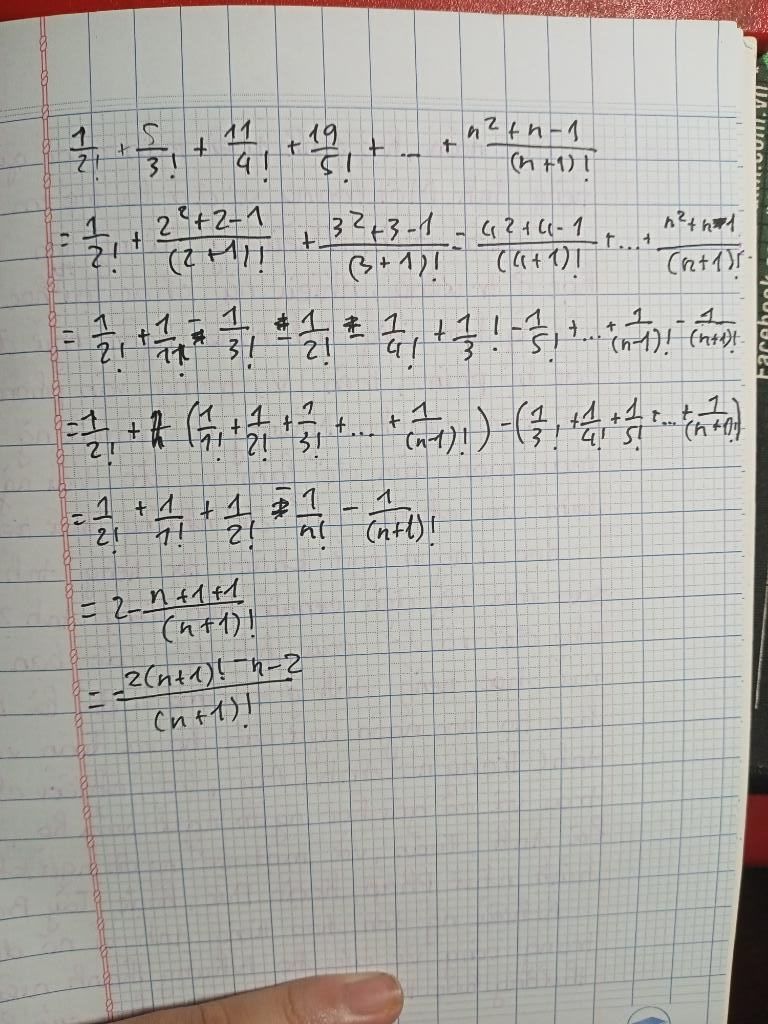 1/2! + 5/3! + 11/4! + 19/5! + ... + (n²+n-1)/(n+1)!
= 1/2! + (2²+2-1)/(2+1)! + (3²+3-1)/(3+1)! - (4²+4-1)/(4+1)! + ... + (n²+n-1)/(n+1)!
= 1/2! + 1/1! - 1/3! + 1/2! - 1/4! + 1/3! - 1/5! + ... + 1/(n-1)! - 1/(n+1)!
= 1/2! + (1/1! + 1/2! + 1/3! + ... + 1/(n-1)!) - (1/3! + 1/4! + 1/5! + ... + 1/(n+1)!)
= 1/2! + 1/1! + 1/2! - 1/n! - 1/(n+1)!
= 2 - (n+1+1)/(n+1)!
= (2(n+1)! - n - 2)/(n+1)!